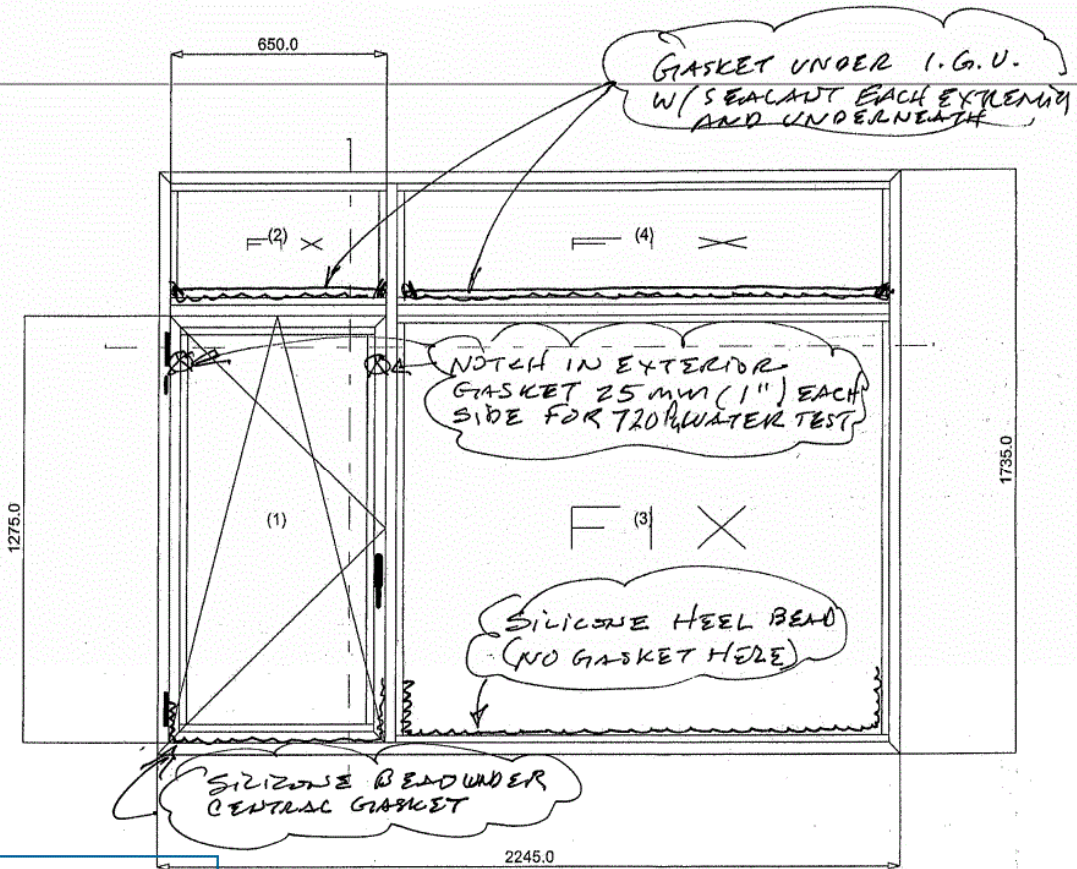 650.0
GASKET UNDER I.G.U.
W/ SEALANT EACH EXTREMITY
AND UNDERNEATH
(2)
FIX
(4)
FIX
NOTCH IN EXTERIOR
GASKET 25 mm (1") EACH
SIDE FOR 720 Pa WATER TEST
1275.0
1735.0
(1)
(3)
FIX
SILICONE HEEL BEAD
(NO GASKET HERE)
SILICONE BEAD UNDER
CENTRAL GASKET
2245.0